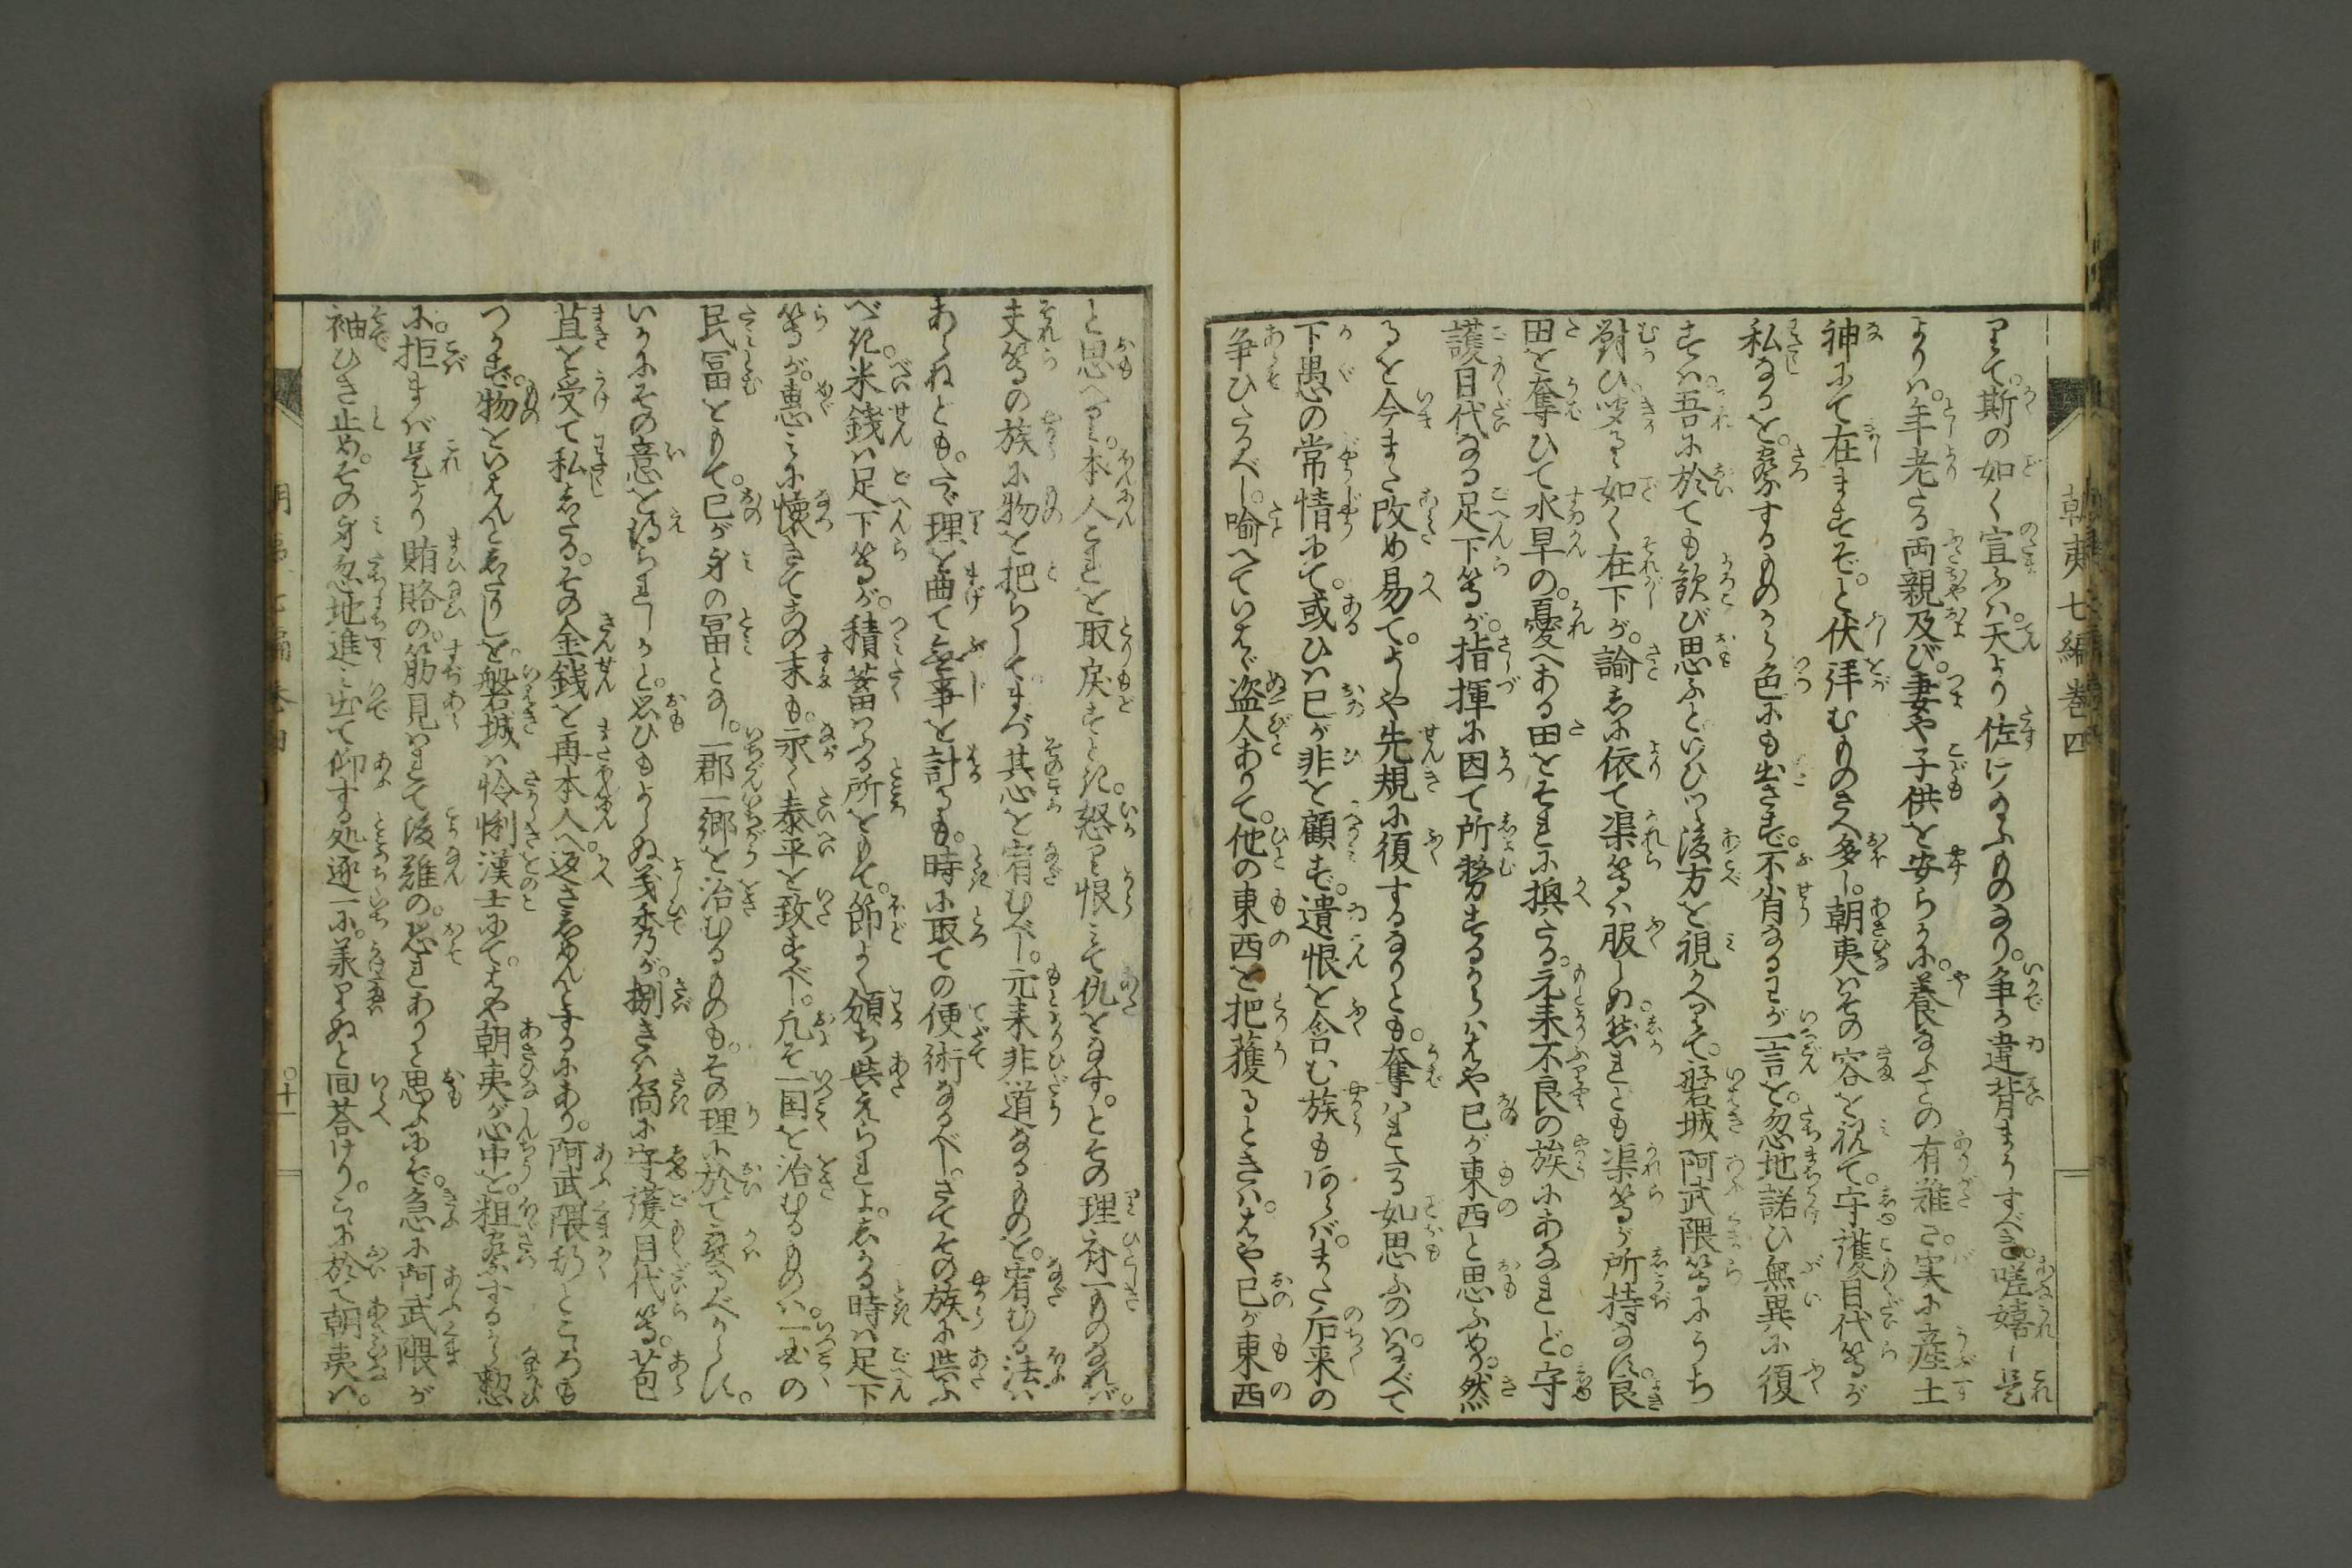 朝夷七編巻四
りて。斯の如く宣ふハ。天より佐け給ふものなり。争か違背まうすべき。嗟嬉し是
よりハ。年老たる両親及び。妻や子供を安らかに。養なふことの有難さ。実に産土
神にて在まさずや。と伏拝むものさへ多し。朝夷ハその容を視て。守護目代等が
私なるを。察するものから色にも出さず。不肖なるわが一言を。忽地諾ひ無異に復
すハ。吾に於ても歓び思ふといひつゝ後方を視かへりて。磐城阿武隈等にうち
対ひ。聞るゝ如く在下が。諭しに依て渠等ハ服しぬ。然れども渠等が所持なす。良
田を奪ひて水旱の。憂へある田をそれに換たる。元来不良の族にあなれど。守
護目代なる足下等が。指揮に因て所務するからハ。はや己が東西と思ふめり。然
るを今また改め易て。よしや先規に復するなりとも。奪ハれたる如思ふのハ。なべて
下愚の常情にて。或ひハ己が非を顧ず。遺恨を含む族もあらバ。また后来の
争ひたるべし。喩へていはゞ盗人ありて。他の東西を把獲るときハ。はや己が東西
と思へり。本人これを取戻すとき。怒り恨みて仇をなす。とその理斉一ものなれバ。
夫等の族に物を把らして。まづ其心を宥むべし。元来非道なるものを。宥むる法ハ
あらねども。たゞ理を曲て無事を計るも。時に取ての便術なるべし。さてその族に与ふ
べき。米銭ハ足下等が。積蓄ハふる所をもて。節よく頒ち与えられよ。しかる時ハ足下
等が。恵ミに懐きてあの末も。永く泰平を致すべし。凡そ一国を治むるものハ。一国の
民冨をもて。己が身の冨となし。一郡一郷を治むるものも。その理に於て変るべからず。
いかにその意を得られしか。と思ひもよらぬ義秀が。捌きハ偏に守護目代等。苞
苴を受て私したる。その金銭を再本人へ。返さしめんとするにあり。阿武隈訝ところも
つかず。物をいはんとしたりしを。磐城ハ怜悧漢士にて。はや朝夷が心中を。粗察するから憖
に。拒まバ是より賄賂の。筋見ハれて後難の。恐れありと思ふにぞ。急に阿武隈が
袖ひき止め。その身忽地進ミ出て仰する処逐一に。承りぬと回荅けり。こゝに於て朝夷ハ。
十一